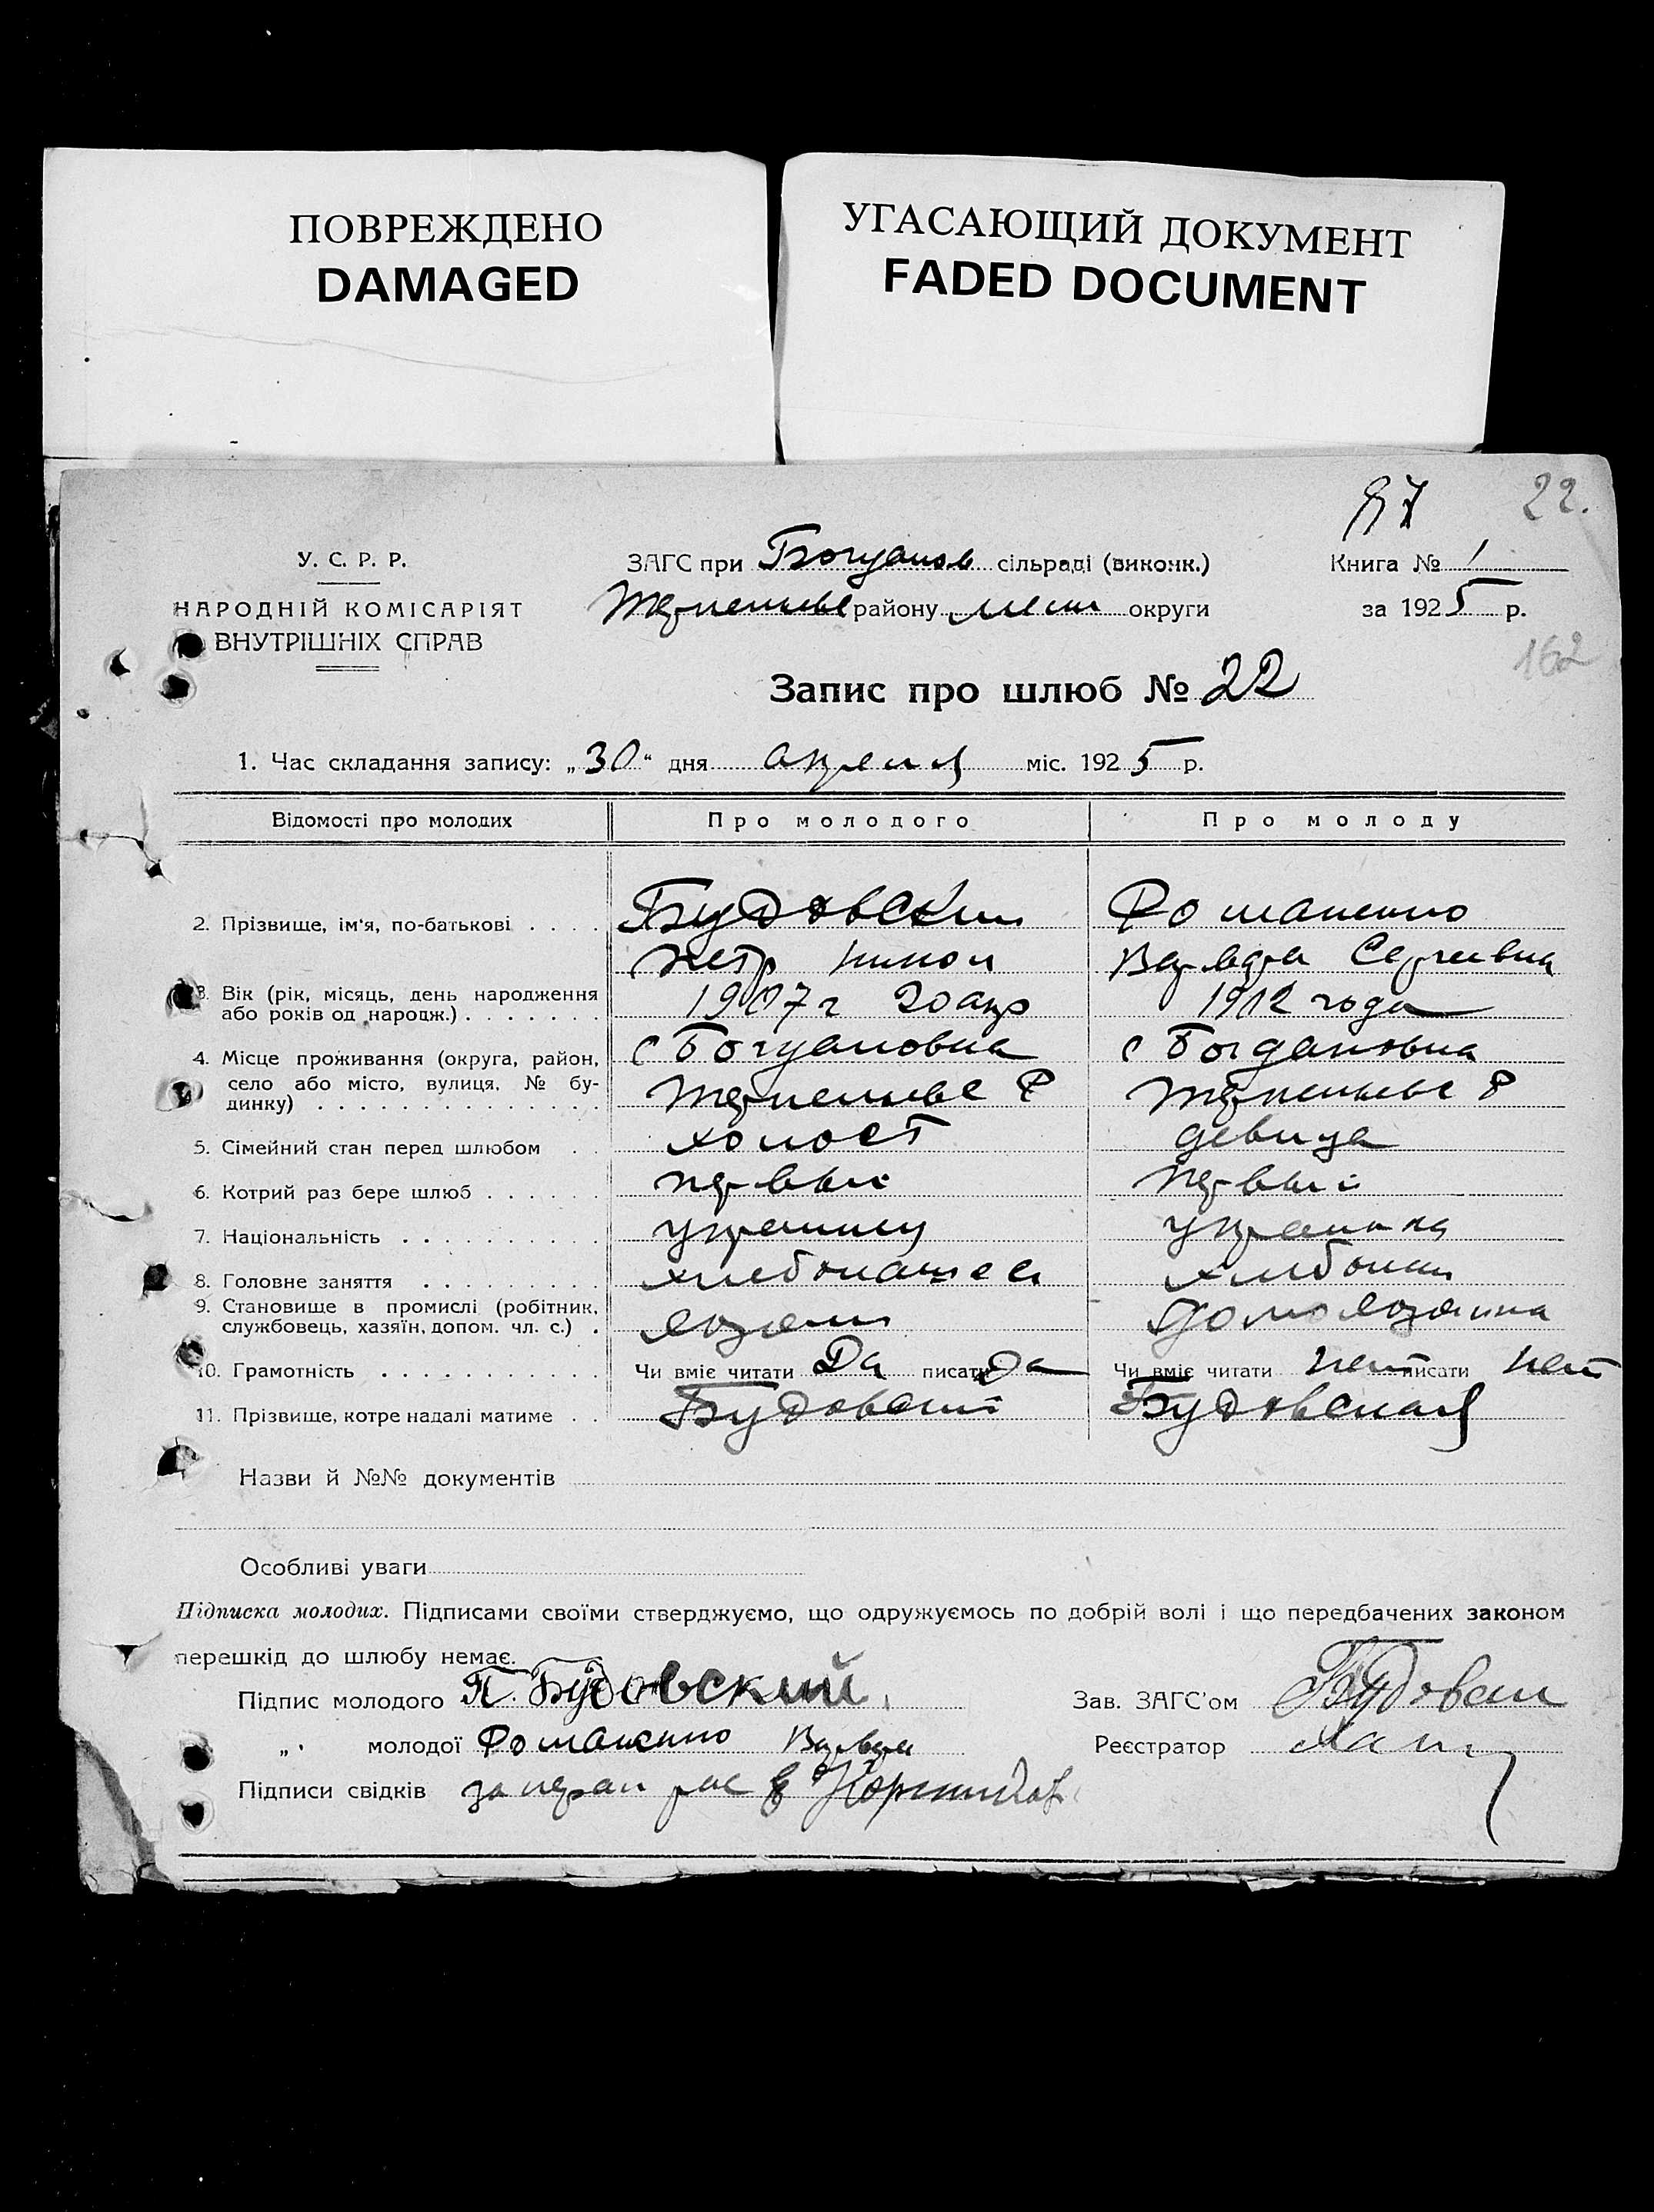 ПОВРЕЖДЕНО
DAMAGED
УГАСАЮЩИЙ ДОКУМЕНТ
FADED DOCUMENT
97 22.
У. С. Р. Р.
ЗАГС при Богданов сільраді (виконк.)
Книга № 1
НАРОДНІЙ КОМІСАРІЯТ
ВНУТРІШНІХ СПРАВ
району округи
за 1925 р.
162
Запис про шлюб № 22
1. Час складання запису: „30“ дня апреля міс. 1925 р.
Відомості про молодих Про молодого Про молоду
2. Прізвище, ім'я, по-батькові Будовский Романенко
Петр Никол Варвара Сергеевна
3. Вік (рік, місяць, день народження або років од народж.) 1907 г 20 апр 1912 года
4. Місце проживання (округа, район, село або місто, вулиця, № будинку) с Богдановка с Богдановка
5. Сімейний стан перед шлюбом холост девица
6. Котрий раз бере шлюб первый первый
7. Національність украинец украинка
8. Головне заняття
9. Становище в промислі (робітник, службовець, хазяїн, допом. чл. с.)
10. Грамотність Чи вміє читати Да писати Да Чи вміє читати нет писати нет
11. Прізвище, котре надалі матиме Будовский Будовская
Назви й №№ документів
Особливі уваги
Підписка молодих. Підписами своїми стверджуємо, що одружуємось по добрій волі і що передбачених законом
перешкід до шлюбу немає.
Підпис молодого П. Будовский
Зав. ЗАГС'ом
„ молодої Романенко Варвара
Реєстратор
Підписи свідків